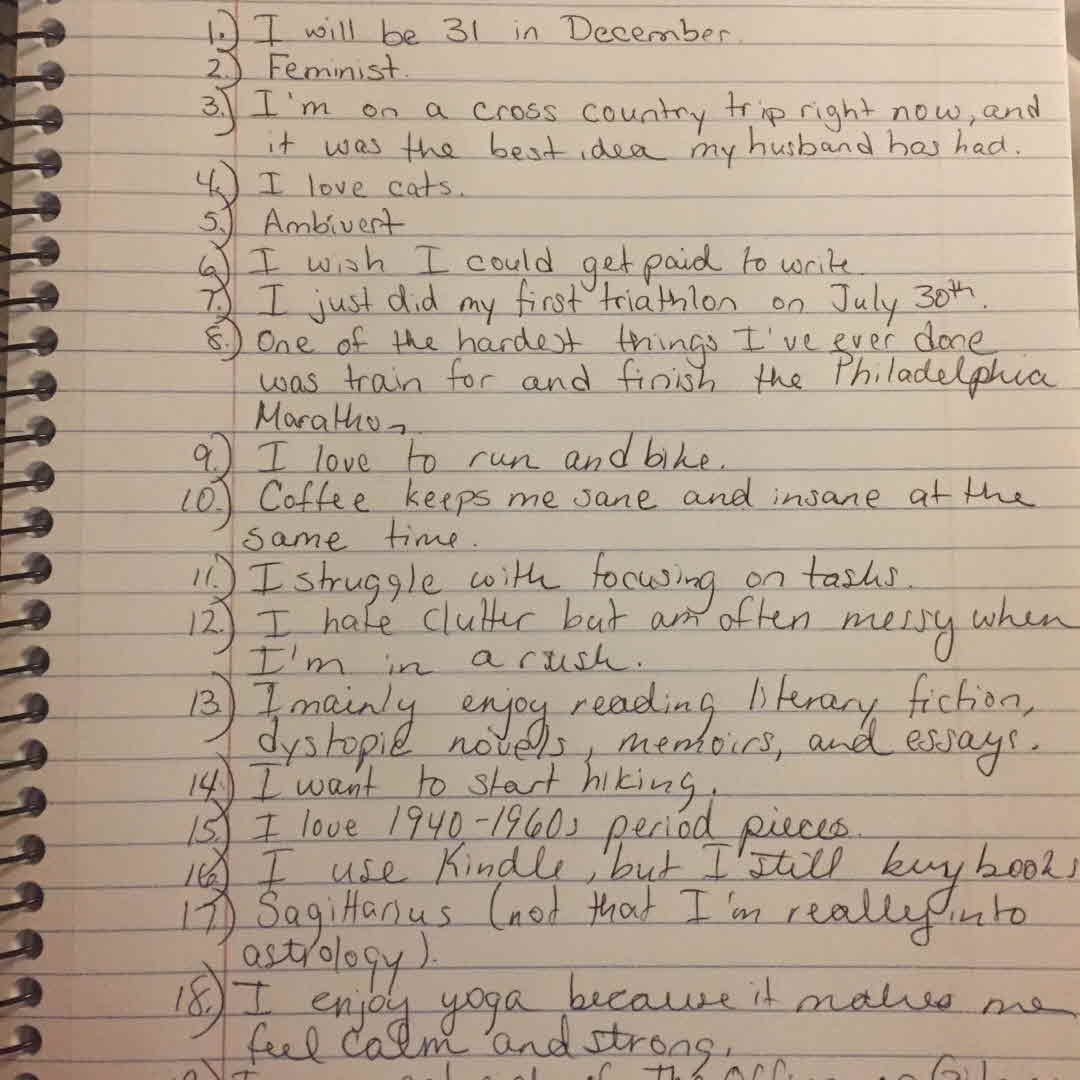 1.) I will be 31 in December.
2.) Feminist.
3.) I'm on a cross country trip right now, and
it was the best idea my husband has had.
4.) I love cats.
5.) Ambivert
6.) I wish I could get paid to write
7.) I just did my first triathlon on July 30th.
8.) One of the hardest things I've ever done
was train for and finish the Philadelphia
Marathon
9.) I love to run and bike.
10.) Coffee keeps me sane and insane at the
same time.
11.) I struggle with focusing on tasks.
12.) I hate clutter but am often messy when
I'm in a rush.
13.) I mainly enjoy reading literary fiction,
dystopic novels, memoirs, and essays.
14.) I want to start hiking.
15.) I love 1940-1960s period pieces.
16.) I use Kindle, but I still buy books
17.) Sagittarius (not that I'm really into
astrology).
18.) I enjoy yoga because it makes me
feel calm and strong.
I of the Office